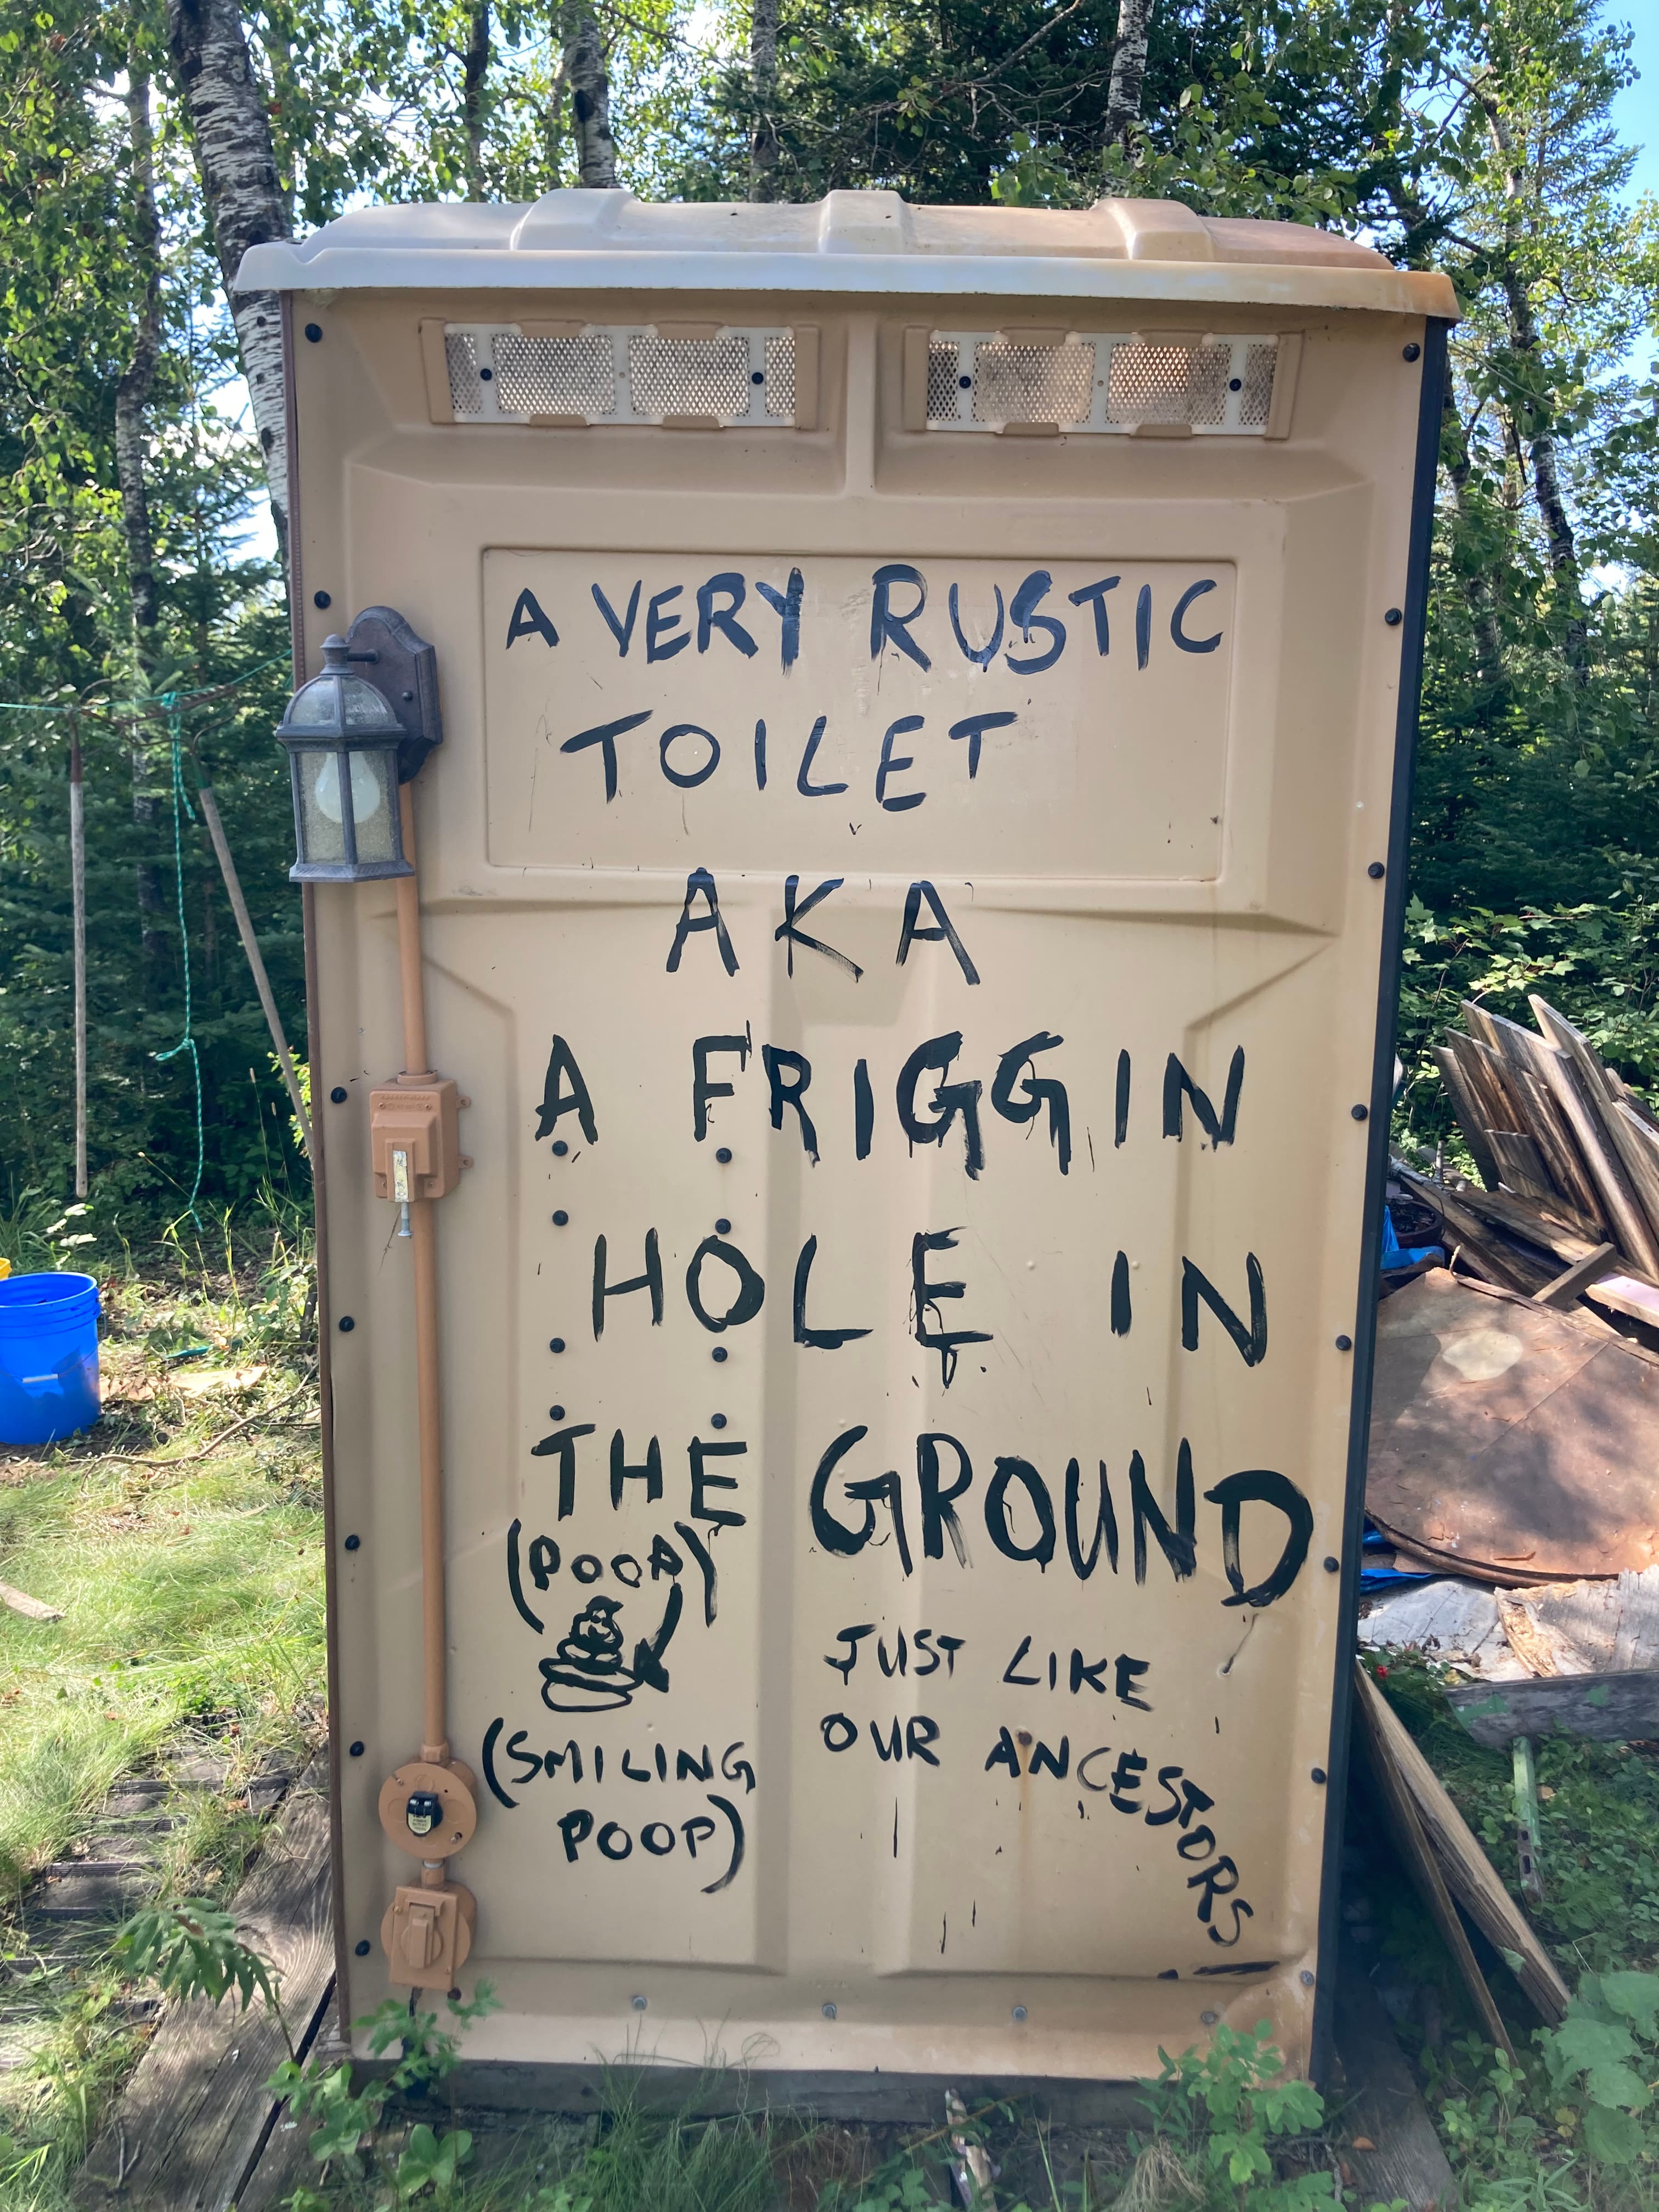 A VERY RUSTIC
TOILET
AKA
A FRIGGIN
HOLE IN
THE GROUND
(POOP)
(SMILING
POOP)
JUST LIKE
OUR ANCESTORS!